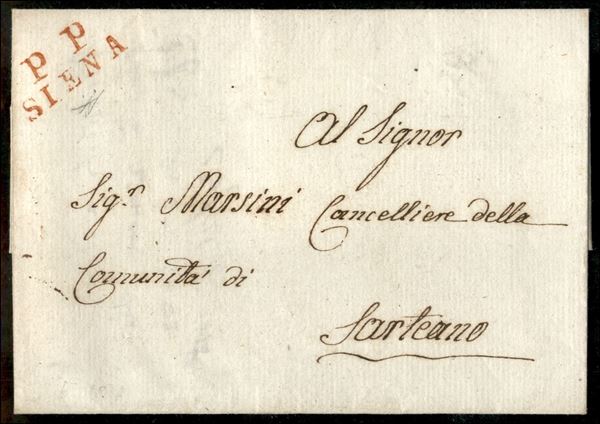 P P
SIENA
Al Signor
Sigr. Marsini Cancelliere della
Comunità di
Sarteano